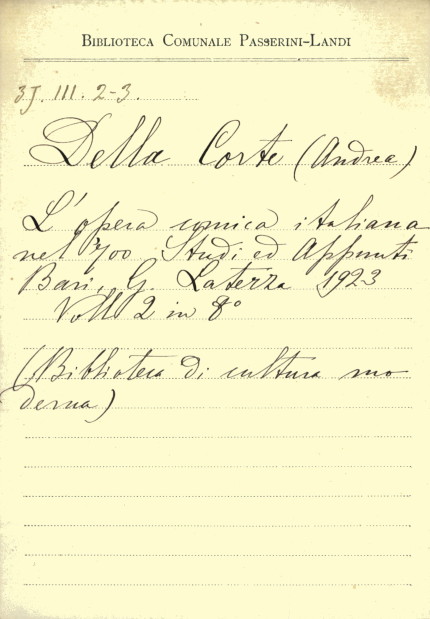 BIBLIOTECA COMUNALE PASSERINI-LANDI
3J. III. 2-3.
Della Corte (Andrea)
L'opera comica italiana
nel '700 Studi ed Appunti
Bari, G. Laterza 1923
Voll 2 in 8°
(Biblioteca di cultura mo
derna)